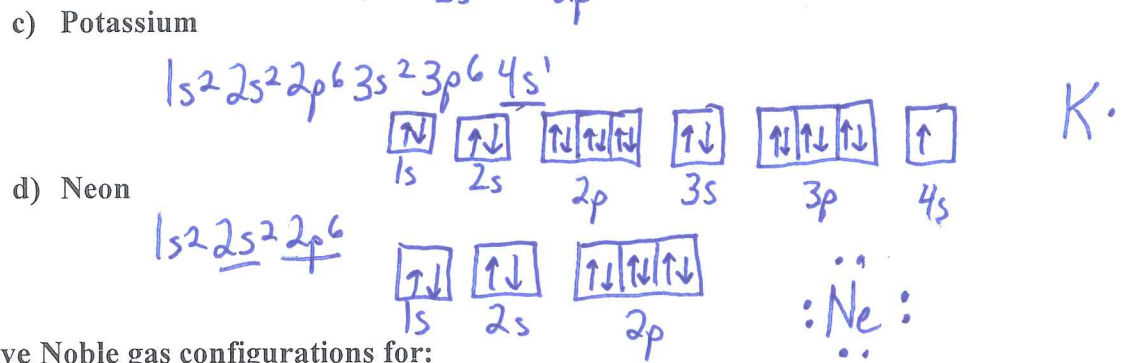 2s 2p
c) Potassium
1s² 2s² 2p⁶ 3s² 3p⁶ 4s¹
↑↓ ↑↓ ↑↓ ↑↓ ↑↓ ↑↓ ↑↓ ↑↓ ↑↓ ↑
K·
1s 2s 2p 3s 3p 4s
d) Neon
1s² 2s² 2p⁶
↑↓ ↑↓ ↑↓ ↑↓ ↑↓
:Ne:
1s 2s 2p
ve Noble gas configurations for: